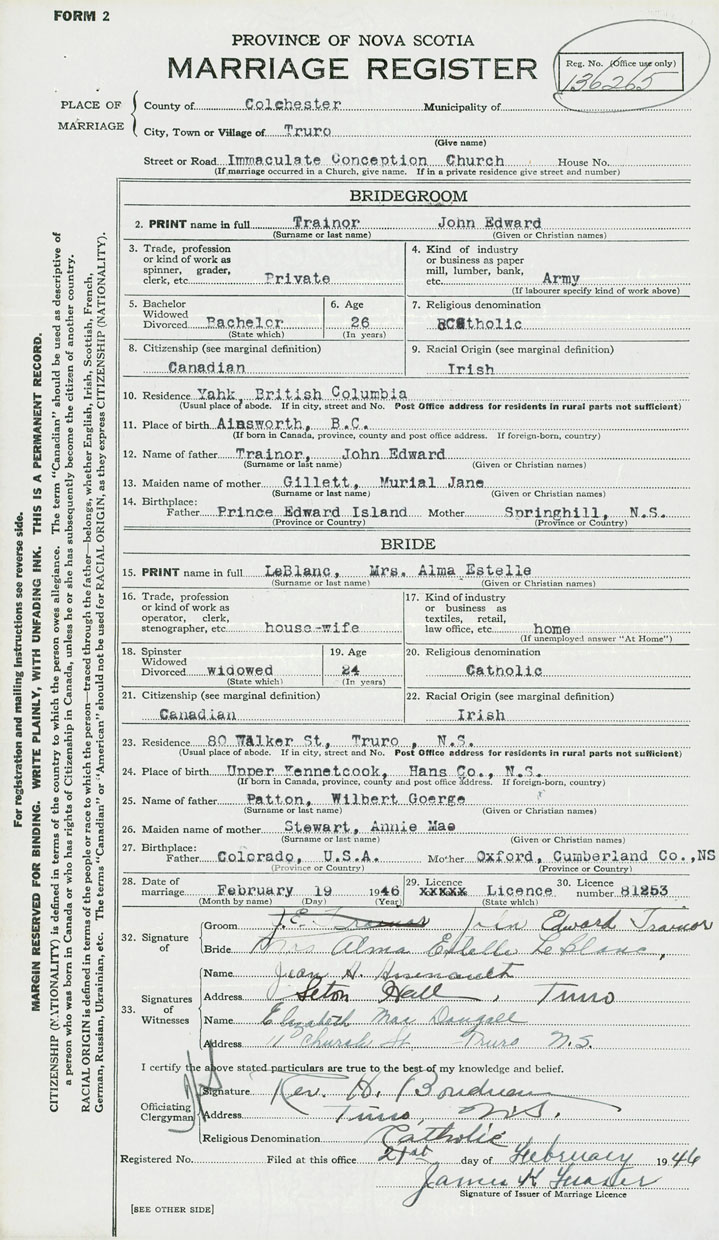 FORM 2
PROVINCE OF NOVA SCOTIA
MARRIAGE REGISTER
Reg. No. (Office use only)
136265
PLACE OF MARRIAGE
County of Colchester Municipality of
City, Town or Village of Truro
(Give name)
Street or Road Immaculate Conception Church House No.
(If marriage occurred in a Church, give name. If in a private residence give street and number)
BRIDEGROOM
2. PRINT name in full Trainor John Edward
(Surname or last name) (Given or Christian names)
3. Trade, profession or kind of work as spinner, grader, clerk, etc. Private
4. Kind of industry or business as paper mill, lumber, bank, etc. Army
(If labourer specify kind of work above)
5. Bachelor Widowed Divorced Bachelor
(State which)
6. Age 26
(In years)
7. Religious denomination
RCatholic
8. Citizenship (see marginal definition)
Canadian
9. Racial Origin (see marginal definition)
Irish
10. Residence Yahk, British Columbia
(Usual place of abode. If in city, street and No. Post Office address for residents in rural parts not sufficient)
11. Place of birth Ainsworth, B.C.
(If born in Canada, province, county and post office address. If foreign-born, country)
12. Name of father Trainor, John Edward
(Surname or last name) (Given or Christian names)
13. Maiden name of mother Gillett, Murial Jane
(Surname or last name) (Given or Christian names)
14. Birthplace:
Father Prince Edward Island Mother Springhill, N.S.
(Province or Country) (Province or Country)
BRIDE
15. PRINT name in full LeBlanc, Mrs. Alma Estelle
(Surname or last name) (Given or Christian names)
16. Trade, profession or kind of work as operator, clerk, stenographer, etc house-wife
17. Kind of industry or business as textiles, retail, law office, etc. home
(If unemployed answer "At Home")
18. Spinster Widowed Divorced widowed
(State which)
19. Age 24
(In years)
20. Religious denomination
Catholic
21. Citizenship (see marginal definition)
Canadian
22. Racial Origin (see marginal definition)
Irish
23. Residence 80 Walker St, Truro, N.S.
(Usual place of abode. If in city, street and No. Post Office address for residents in rural parts not sufficient)
24. Place of birth Upper Kennetcook, Hans Co., N.S.
(If born in Canada, province, county and post office address. If foreign-born, country)
25. Name of father Patton, Wilbert Goerge
(Surname or last name) (Given or Christian names)
26. Maiden name of mother Stewart, Annie Mae
(Surname or last name) (Given or Christian names)
27. Birthplace:
Father Colorado, U.S.A. Mother Oxford, Cumberland Co.,NS
(Province or Country) (Province or Country)
28. Date of marriage February 19 1946
(Month by name) (Day) (Year)
29. Licence xxxxx Licence
(State which)
30. Licence number 81253
32. Signature of
Groom J.E. Trainor John Edward Trainor
Bride Mrs Alma Estelle LeBlanc,
33. Signatures of Witnesses
Name Jean H.
Address Seton Hall, Truro
Name Elizabeth Mac Dougall
Address Church St Truro N.S.
I certify the above stated particulars are true to the best of my knowledge and belief.
Officiating Clergyman
Signature Rev. H. Boudreau
Address Truro, N.S.
Religious Denomination Catholic
Registered No. Filed at this office 21st day of February 1946
James K Fraser
Signature of Issuer of Marriage Licence
[SEE OTHER SIDE]
For registration and mailing instructions see reverse side.
MARGIN RESERVED FOR BINDING. WRITE PLAINLY, WITH UNFADING INK. THIS IS A PERMANENT RECORD.
CITIZENSHIP (NATIONALITY) is defined in terms of the country to which the person owes allegiance. The term "Canadian" should be used as descriptive of
a person who was born in Canada or who has rights of Citizenship in Canada, unless he or she has subsequently become the citizen of another country.
RACIAL ORIGIN is defined in terms of the people or race to which the person—traced through the father—belongs, whether English, Irish, Scottish, French,
German, Russian, Ukrainian, etc. The terms "Canadian" or "American" should not be used for RACIAL ORIGIN, as they express CITIZENSHIP (NATIONALITY).